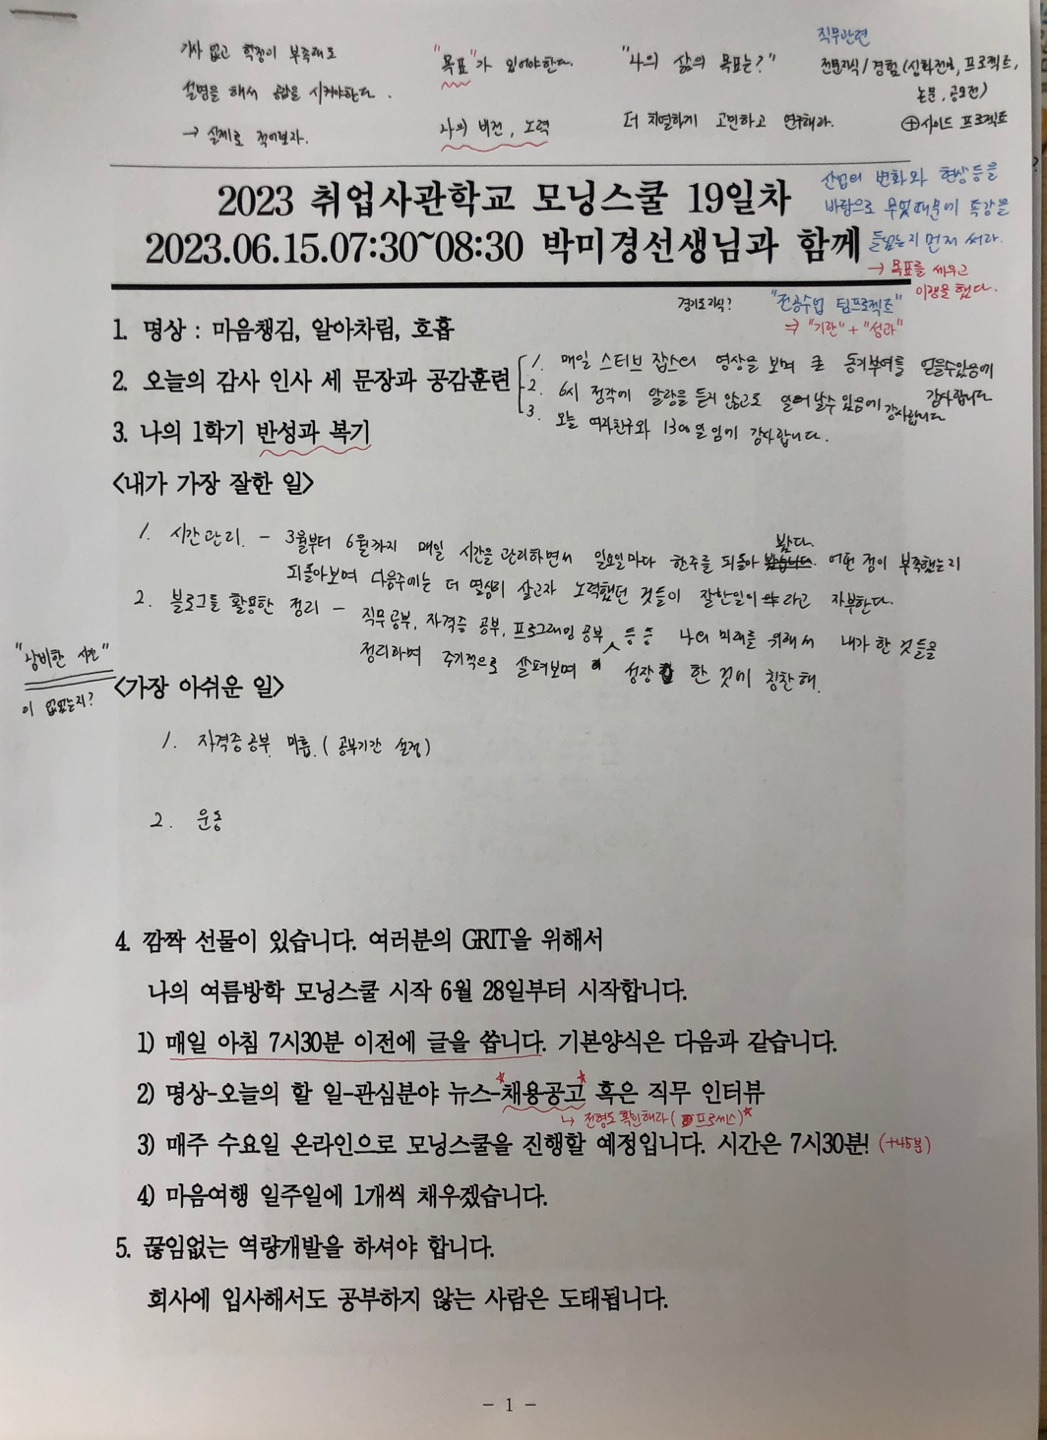 기사 없고 학점이 부족해도
설명을 해서 공감을 시켜야한다.
→ 실제로 적어보자.
"목표"가 있어야한다.
나의 비전, 노력
"나의 삶의 목표는?"
더 치열하게 고민하고 연구해라.
직무관련
전문지식/경험(심화전공, 프로젝트,
논문, 공모전)
⊕사이드 프로젝트
산업의 변화와 현상등을
바탕으로 무엇때문에 수강을
들었는지 먼저 써라.
→ 목표를 세우고
이행을 했다.
2023 취업사관학교 모닝스쿨 19일차
2023.06.15.07:30~08:30 박미경선생님과 함께
경기도지식?
"전공수업 팀프로젝트"
⇒ "기간" + "성과"
1. 명상 : 마음챙김, 알아차림, 호흡
2. 오늘의 감사 인사 세 문장과 공감훈련
1. 매일 스티브 잡스의 영상을 보며 큰 동기부여를 얻을수있음에 감사합니다
2. 6시 정각에 알람을 듣지 않고도 일어날수 있음에 감사합니다
3. 오늘 여자친구와 1300일임에 감사합니다.
3. 나의 1학기 반성과 복기
<내가 가장 잘한 일>
1. 시간관리. - 3월부터 6월까지 매일 시간을 관리하면서 일요일마다 한주를 되돌아 봤다. 어떤 점이 부족했는지
되돌아보며 다음주에는 더 열심히 살고자 노력했던 것들이 잘한일이라고 자부한다.
2. 블로그를 활용한 정리 - 직무공부, 자격증 공부, 프로그래밍 공부 등등 나의 미래를 위해서 내가 한 것들을
정리하며 주기적으로 살펴보며 성장 한 것에 칭찬해.
"낭비한 시간"
이 없었는지?
<가장 아쉬운 일>
1. 자격증공부 미흡. (공부기간 설정)
2. 운동
4. 깜짝 선물이 있습니다. 여러분의 GRIT을 위해서
나의 여름방학 모닝스쿨 시작 6월 28일부터 시작합니다.
1) 매일 아침 7시30분 이전에 글을 씁니다. 기본양식은 다음과 같습니다.
2) 명상-오늘의 할 일-관심분야 뉴스-채용공고 혹은 직무 인터뷰
↳ 전형도 확인해라(프로세스)
3) 매주 수요일 온라인으로 모닝스쿨을 진행할 예정입니다. 시간은 7시30분! (+45분)
4) 마음여행 일주일에 1개씩 채우겠습니다.
5. 끊임없는 역량개발을 하셔야 합니다.
회사에 입사해서도 공부하지 않는 사람은 도태됩니다.
- 1 -